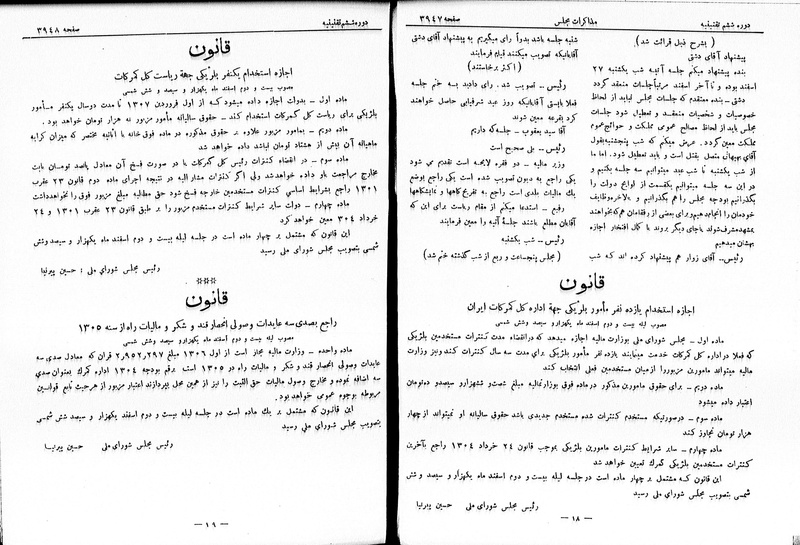 دوره ششم تقنینیه
مذاکرات مجلس
صفحه ۳۹۴۷
( بشرح قبل قرائت شد )
پیشنهاد آقای دشتی
بنده پیشنهاد میکنم جلسه آتیه شب یکشنبه ۲۷
اسفند بوده و تا آخر اسفند مرتباً جلسات منعقد گردد
دشتی ــ بنده معتقدم که جلسات مجلس نباید از لحاظ
خصوصیات و شخصیات منعقد و تعطیل شود جلسات
مجلس باید از لحاظ مصالح عمومی مملکت و حوائج عموم
مملکت معین گردد. عرض میکنم که شب پنجشنبه بقول
آقای بهبهانی متصل بقتل است و باید تعطیل شود. اما ما
از شب یکشنبه تا شب عید میتوانیم سه جلسه بکنیم و
در این سه جلسه میتوانیم یکقسمت از لوایح دولت را
بگذرانیم بودجه مجلس را هم بگذرانیم و بالاخره وظایف
خودمان را انجام دهیم برای بعضی از رفقامان هم که میخواهند
بمشهد مشرف شوند یا جای دیگر بروند با کمال افتخار اجازه
بهشان میدهیم
رئیس ــ آقای زوار هم پیشنهاد کرده اند که شب
شنبه جلسه باشد بدواً رأی میگیریم به پیشنهاد آقای دشتی
آقایانیکه تصویب میکنند قیام فرمایند
( اکثر برخاستند )
رئیس ــ تصویب شد. رأی دادید بسه ختم جلسه
فعلا بایستی آقایانیکه روز عید شرفیابی حاصل خواهند
کرد بقرعه معین شوند
آقا سید یعقوب ــ جلسه که داریم
رئیس ــ بلی صحیح است
وزیر مالیه ــ دو فقره لایحه است تقدیم می شود
یکی راجع به دیون تصویب شده است یکی راجع بوضع
یک مالیات بلدی است راجع به تفریح گاهها و نمایشگاهها
رفیع ــ استدعا میکنم از مقام ریاست برای این که
آقایان مطلع باشند جلسه آتیه را معین فرمایند
رئیس ــ شب یکشنبه
( مجلس پنجساعت و ربع از شب گذشته ختم شد )
قانون
اجازه استخدام یازده نفر مأمور بلژیکی جهة اداره کل گمرکات ایران
مصوب لیله بیست و دوم اسفند ماه یکهزار و سیصد وشش شمسی
ماده اول ــ مجلس شورای ملی بوزارت مالیه اجازه میدهد که در انقضاء مدت کنترات مستخدمین بلژیکی
که فعلا در اداره کل گمرکات خدمت مینمایند یازده نفر مأمور بلژیکی برای مدت سه سال کنترات کند و نیز وزارت
مالیه میتواند مامورین مزبور را از میان مستخدمین فعلی انتخاب کند
ماده دویم ــ برای حقوق مامورین مذکور در ماده فوق بوزارت مالیه مبلغ شصت و ششهزار و سیصد و ده تومان
اعتبار داده میشود
ماده سوم ــ درصورتیکه مستخدم کنترات شده مستخدم جدیدی باشد حقوق سالیانه او نمیتواند از چهار
هزار تومان تجاوز کند
ماده چهارم ــ سایر شرایط کنترات مامورین بلژیکی بموجب قانون ۲۴ خرداد ۱۳۰۴ راجع بآخرین
کنترات مستخدمین بلژیکی گمرک تعیین خواهد شد
این قانون که مشتمل بر چهار ماده است در جلسه لیله بیست و دوم اسفند ماه یکهزار و سیصد و شش
شمسی بتصویب مجلس شورای ملی رسید
رئیس مجلس شورای ملی حسین پیرنیا
ــ ۱۸ ــ
دوره ششم تقنینیه
صفحه ۳۹۴۸
قانون
اجازه استخدام یکنفر بلژیکی جهة ریاست کل گمرکات
مصوب بیست و دوم اسفند ماه یکهزار و سیصد و شش شمسی
ماده اول ــ بدولت اجازه داده میشود که از اول فروردین ۱۳۰۷ تا مدت دو سال یکنفر مأمور
بلژیکی برای ریاست کل گمرکات استخدام کند ــ حقوق سالیانه مأمور مزبور نه هزار تومان خواهد بود .
ماده دویم ــ بمامور مزبور علاوه بر حقوق مذکوره در ماده فوق خانه با اثاثیه مختصر که میزان کرایه
ماهیانه آن بیش از هشتاد تومان نباشد داده خواهد شد
ماده سوم ــ در انقضاء کنترات رئیس کل گمرکات یا در صورت فسخ آن معادل پانصد تومان بابت
مخارج مراجعت باو داده خواهد شد ولی اگر کنترات مشارالیه در نتیجه اجرای ماده دوم قانون ۲۳ عقرب
۱۳۰۱ راجع بشرایط اساسی کنترات مستخدمین خارجه فسخ شود حق مطالبه مبلغ مزبور فوق را نخواهد داشت
ماده چهارم ــ دولت سایر شرایط کنترات مستخدم مزبور را بر طبق قانون ۲۳ عقرب ۱۳۰۱ و ۲۴
خرداد ۳۰۴ معین خواهد کرد
این قانون که مشتمل بر چهار ماده است در جلسه لیله بیست و دوم اسفند ماه یکهزار و سیصد و شش
شمسی بتصویب مجلس شورای ملی رسید
رئیس مجلس شورای ملی : حسین پیرنیا
***
قانون
راجع بصدی سه عایدات وصولی انحصار قند و شکر و مالیات راه از سنه ۱۳۰۵
مصوب لیله بیست و دوم اسفند ماه یکهزار و سیصد و شش شمسی
ماده واحده ــ وزارت مالیه مجاز است از اول ۱۳۰۶ مبلغ ۲٫۹۵۲٫۲۹۷ قران که معادل صدی سه
عایدات وصولی انحصار قند و شکر و مالیات راه در ۱۳۰۵ است برقم بودجه ۱۳۰۴ اداره گمرک بعنوان صدی
سه اضافه نموده و مخارج وصول مالیات حق الثبت را نیز از همین محل بپردازند اعتبار مزبور از هر حیث تابع قوانین
مربوطه بوجوه عمومی خواهد بود .
این قانون که مشتمل بر یک ماده است در جلسه لیله بیست و دوم اسفند یکهزار و سیصد و شش شمسی
بتصویب مجلس شورای ملی رسید
رئیس مجلس شورای ملی حسین پیرنیا
ــ ۱۹ ــ